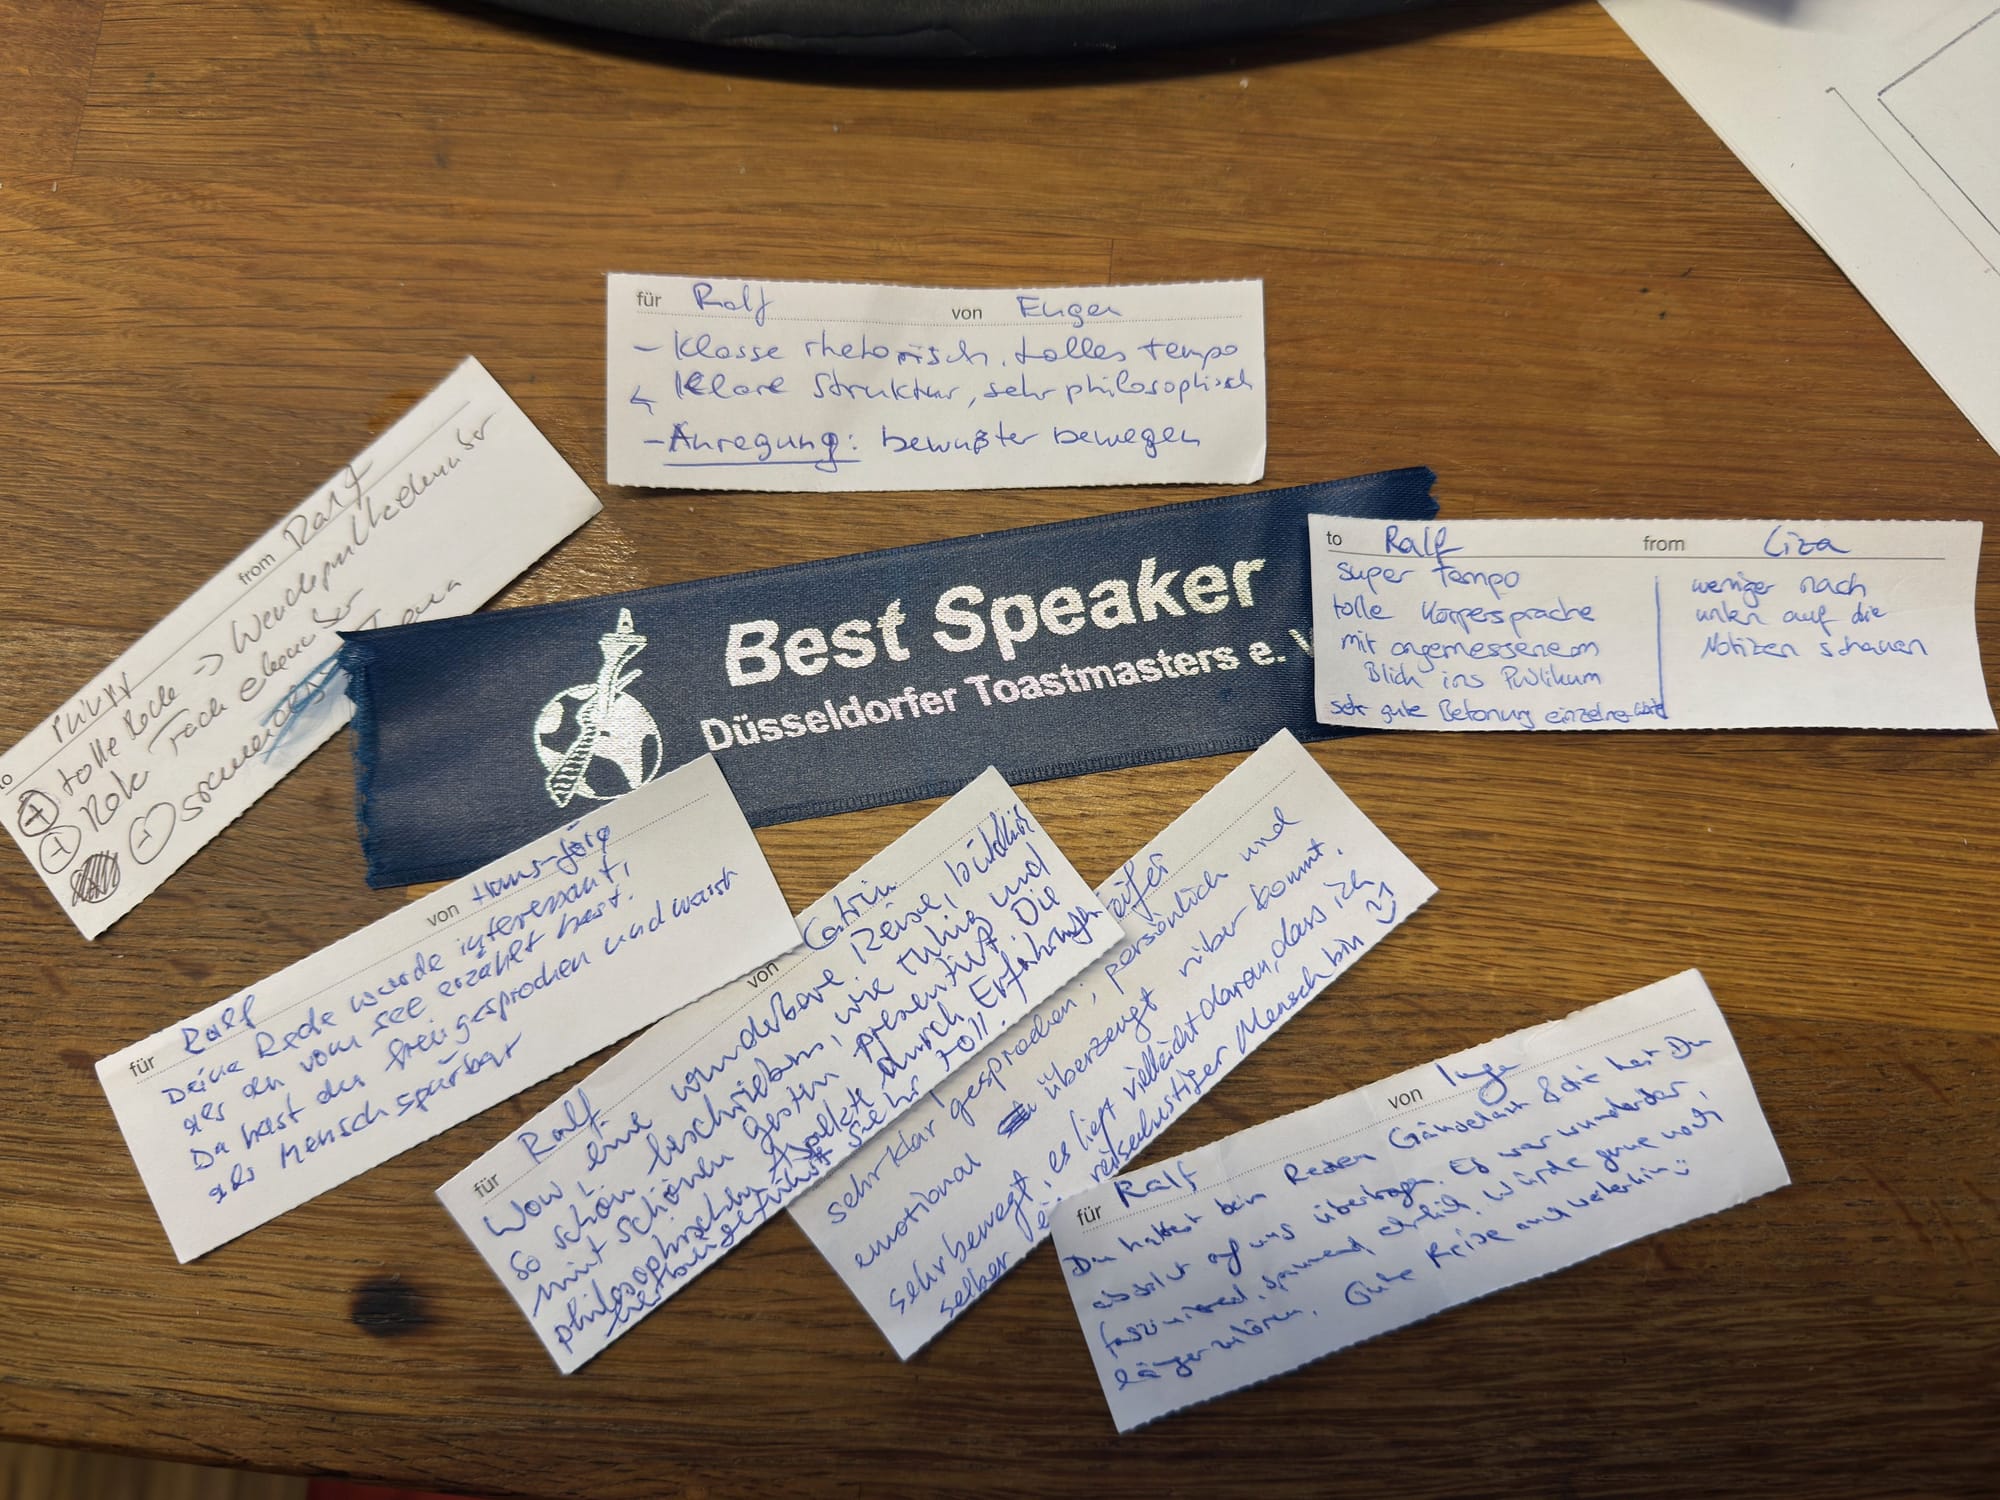 für Ralf von Eugen
– Klasse rhetorisch, tolles tempo
Klare Struktur, sehr philosophisch
– Anregung: bewußter bewegen
to from Ralf
+ tolle Rede -> 
+
-
Best Speaker
Düsseldorfer Toastmasters e. V
to Ralf from Liza
super tempo
tolle Körpersprache
mit angemessenem
Blick ins Publikum
sehr gute Betonung einzelne
weniger nach
unten auf die
Notizen schauen
für Ralf von Hans-Jörg
Deine Rede wurde interessant,
als du vom See erzählt hast.
Da hast du frei gesprochen und warst
als Mensch spürbar
für Ralf von Catrin
Wow, eine wunderbare Reise, bildlich
so schön beschrieben, wie ruhig und
mit schönen Gesten präsentiert. Die
philosophischen Aspekte durch Erfahrungen
sehr toll.
sehr klar gesprochen; persönlich und
emotional überzeugt rüber kommt.
sehr bewegt, es liegt vielleicht daran, dass ich
selber reiselustiger Mensch bin
für Ralf von Inge
Du hattest beim Reden Gänsehaut & die hast Du
absolut auf uns übertragen. Es war wunderbar,
faszinierend, spannend, ehrlich. Würde gerne noch
länger zuhören. Gute Reise auch weiterhin